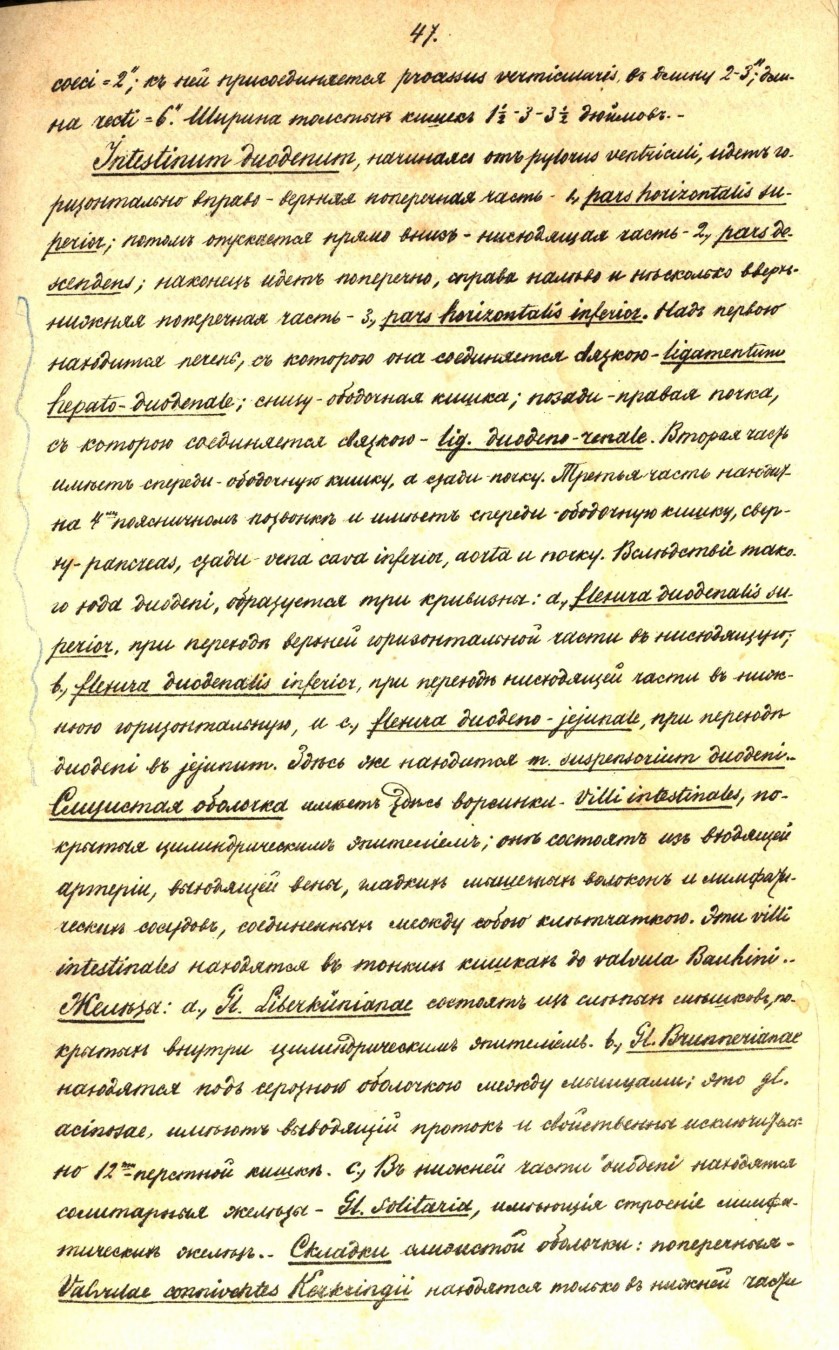 47.
coeci = 2"; къ ней присоединяется processus vermicularis, въ длину 2-3"; дли-
на recti = 6". Ширина толстыхъ кишекъ 1½-3-3½ дюймовъ.-
Intestinum duodenum, начинаясь отъ pylorus ventriculi, идетъ го-
ризонтально вправо - верхняя поперечная часть - 1, pars horizontalis su-
perior; потомъ опускается прямо внизъ - нисходящая часть - 2, pars de-
scendens; наконецъ идетъ поперечно, справа налѣво и нѣсколько вверхъ-
нижняя поперечная часть - 3, pars horizontalis inferior. Надъ первою
находится печень, съ которою она соединяется связкою - ligamentum
hepato-duodenale; снизу - ободочная кишка; позади - правая почка,
съ которою соединяется связкою - lig. duodeno-renale. Вторая часть
имѣетъ спереди - ободочную кишку, а сзади почку. Третья часть находит-
на 4мъ поясничномъ позвонкѣ и имѣетъ спереди - ободочную кишку, свер-
ху - pancreas, сзади - vena cava inferior, aorta и почку. Вслѣдствіе тако-
го хода duodeni, образуется три кривизны: a, flexura duodenalis su-
perior, при переходѣ верхней горизонтальной части въ нисходящую;
b, flexura duodenalis inferior, при переходѣ нисходящей части въ ниж-
нюю горизонтальную, и c, flexura duodeno-jejunale, при переходѣ
duodeni въ jejunum. Здѣсь же находится m. suspensorium duodeni..
Слизистая оболочка имѣетъ здѣсь ворсинки - Villi intestinales, по-
крытыя цилиндрическимъ эпителіемъ; онѣ состоятъ изъ входящей
артеріи, выходящей вены, гладкихъ мышечныхъ волоконъ и лимфати-
ческихъ сосудовъ, соединенныхъ между собою клѣтчаткою. Эти villi
intestinales находятся въ тонкихъ кишкахъ до valvula Bauhini..
Желѣзы: a, Gl. Liberkünianae состоятъ изъ слѣпыхъ мѣшковъ, по-
крытыхъ внутри цилиндрическимъ эпителіемъ. b, Gl. Brunnerianae
находятся подъ серозною оболочкою между мышцами; это gl.
acinosae, имѣютъ выводящій протокъ и свойственны исключитель-
но 12ти перстной кишкѣ. c, Въ нижней части duodeni находятся
солитарныя желѣзы - Gl. solitaria, имѣющія строеніе лимфа-
тическихъ желѣзъ.. Складки слизистой оболочки: поперечныя -
Valvulae conniventes Kerkringii находятся только въ нижней части